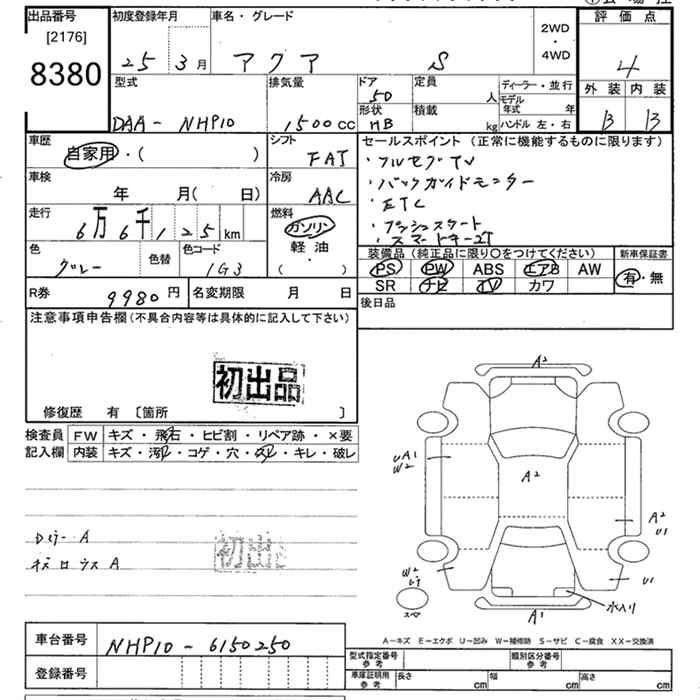 出品番号
[2176]
8380
初度登録年月
25 3月
車名・グレード
アクア S
2WD
・
4WD
評価点
4
型式
DAA- NHP10
排気量
1500cc
ドア
5D
形状
HB
定員
人
積載
kg
ディーラー・並行
モデル年式 年
ハンドル 左・右
外装 内装
B B
車歴
自家用・( )
シフト
FAT
セールスポイント (正常に機能するものに限ります)
・フルセグTV
・バックガイドモニター
・ETC
・プッシュスタート
・スマートキー2T
車検
年 月( 日)
冷房
AAC
走行
6万6千125km
燃料
ガソリン
軽油
( ・ )
色
グレー
色替
色コード
1G3
装備品 (純正品に限り〇をつけてください)
PS PW ABS エアB AW
SR ナビ TV カワ
新車保証書
有・無
R券
9980円
名変期限 月 日
後日品
注意事項申告欄 (不具合内容等は具体的に記入して下さい)
初出品
修復歴 有 〔箇所 〕
検査員
記入欄
FW キズ・飛石・ヒビ割・リペア跡・×要
内装 キズ・汚れ・コゲ・穴・スレ・キレ・破レ
初出
A2
UA1
W2
A2
A2
U1
W2
U1
水入り
A1
A-キズ E-エクボ U-凹み W-補修跡 S-サビ C-腐食 XX-交換済
車台番号
NHP10-6150250
登録番号
型式指定番号
参考
類別区分番号
参考
車庫証明用
参考
長さ cm
幅 cm
高さ cm